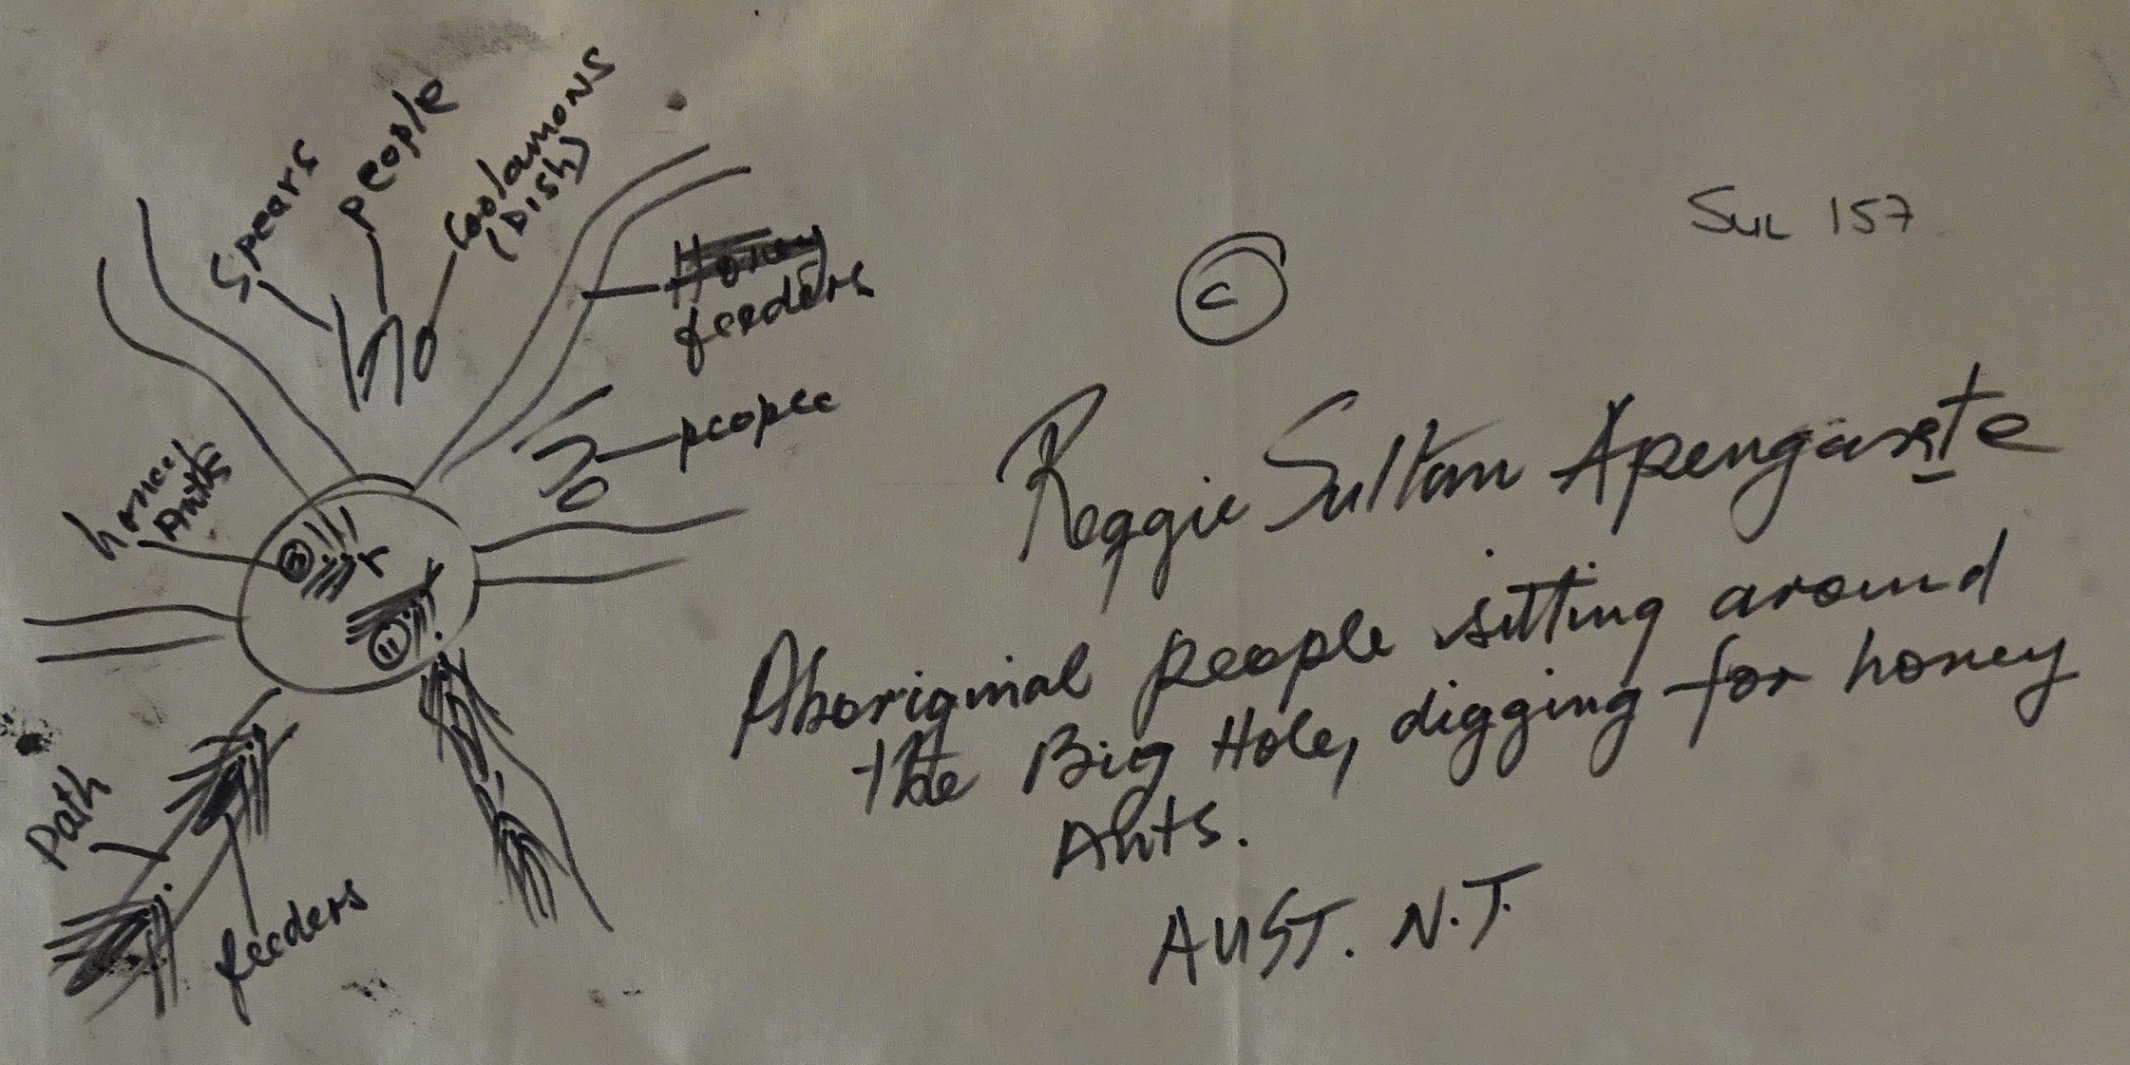 Spears
people
Coolamons
(Dish)
Honey
feeders
people
honey
Ants
Path
feeders
Sul 157
C
Reggie Sultan Apengarte
Aboriginal people sitting around
the Big Hole, digging for honey
Ants.
AUST. N.T.